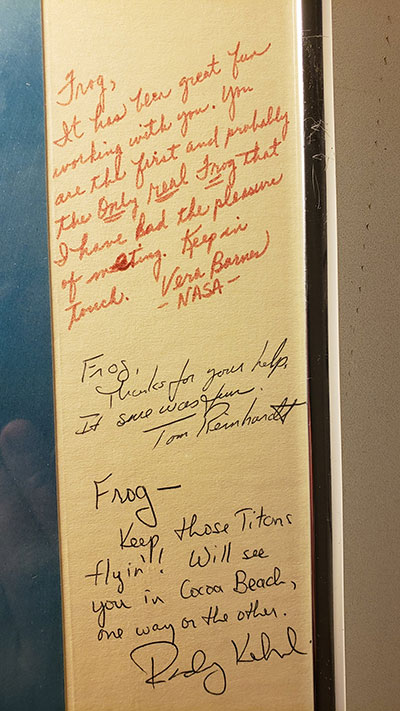 Frog,
It has been great fun
working with you. You
are the first and probably
the Only real Frog that
I have had the pleasure
of meeting. Keep in
touch. Vera Barnes
- NASA -
Frog,
Thanks for your help.
It sure was fun.
Tom Reinhardt
Frog-
Keep those Titans
flyin'! Will see
you in Cocoa Beach,
one way or the other.